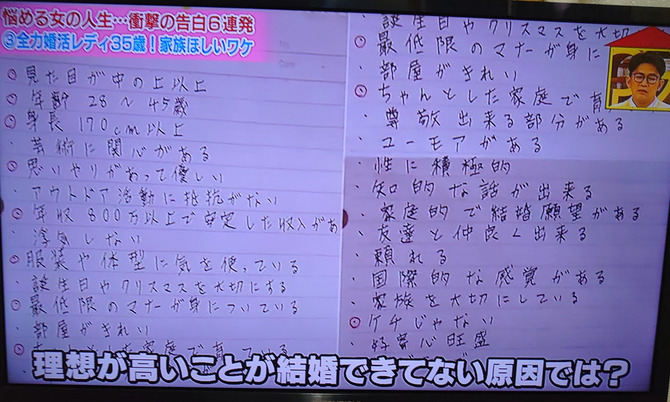 悩める女の人生…衝撃の告白6連発
③全力婚活レディ35歳！家族ほしいワケ
◎見た目が中の上以上
◎年齢 28～45歳
◎身長 170cm以上
・芸術に関心がある
◎思いやりがあって優しい
・アウトドア活動に抵抗がない
◎年収 800万以上で安定した収入があ
・浮気しない
◎服装や体型に気を使っている
・誕生日やクリスマスを大切にする
◎最低限のマナーが身についている
・部屋がきれい
・誕生日やクリスマスを大切
◎最低限のマナーが身に
・部屋がきれい
◎ちゃんとした家庭で育
・尊敬出来る部分がある
・ユーモアがある
・性に積極的
・知的な話が出来る
・家庭的で結婚願望がある
・友達と仲良く出来る
・頼れる
・国際的な感覚がある
・家族を大切にしている
◎ケチじゃない
・好奇心旺盛
理想が高いことが結婚できてない原因では？